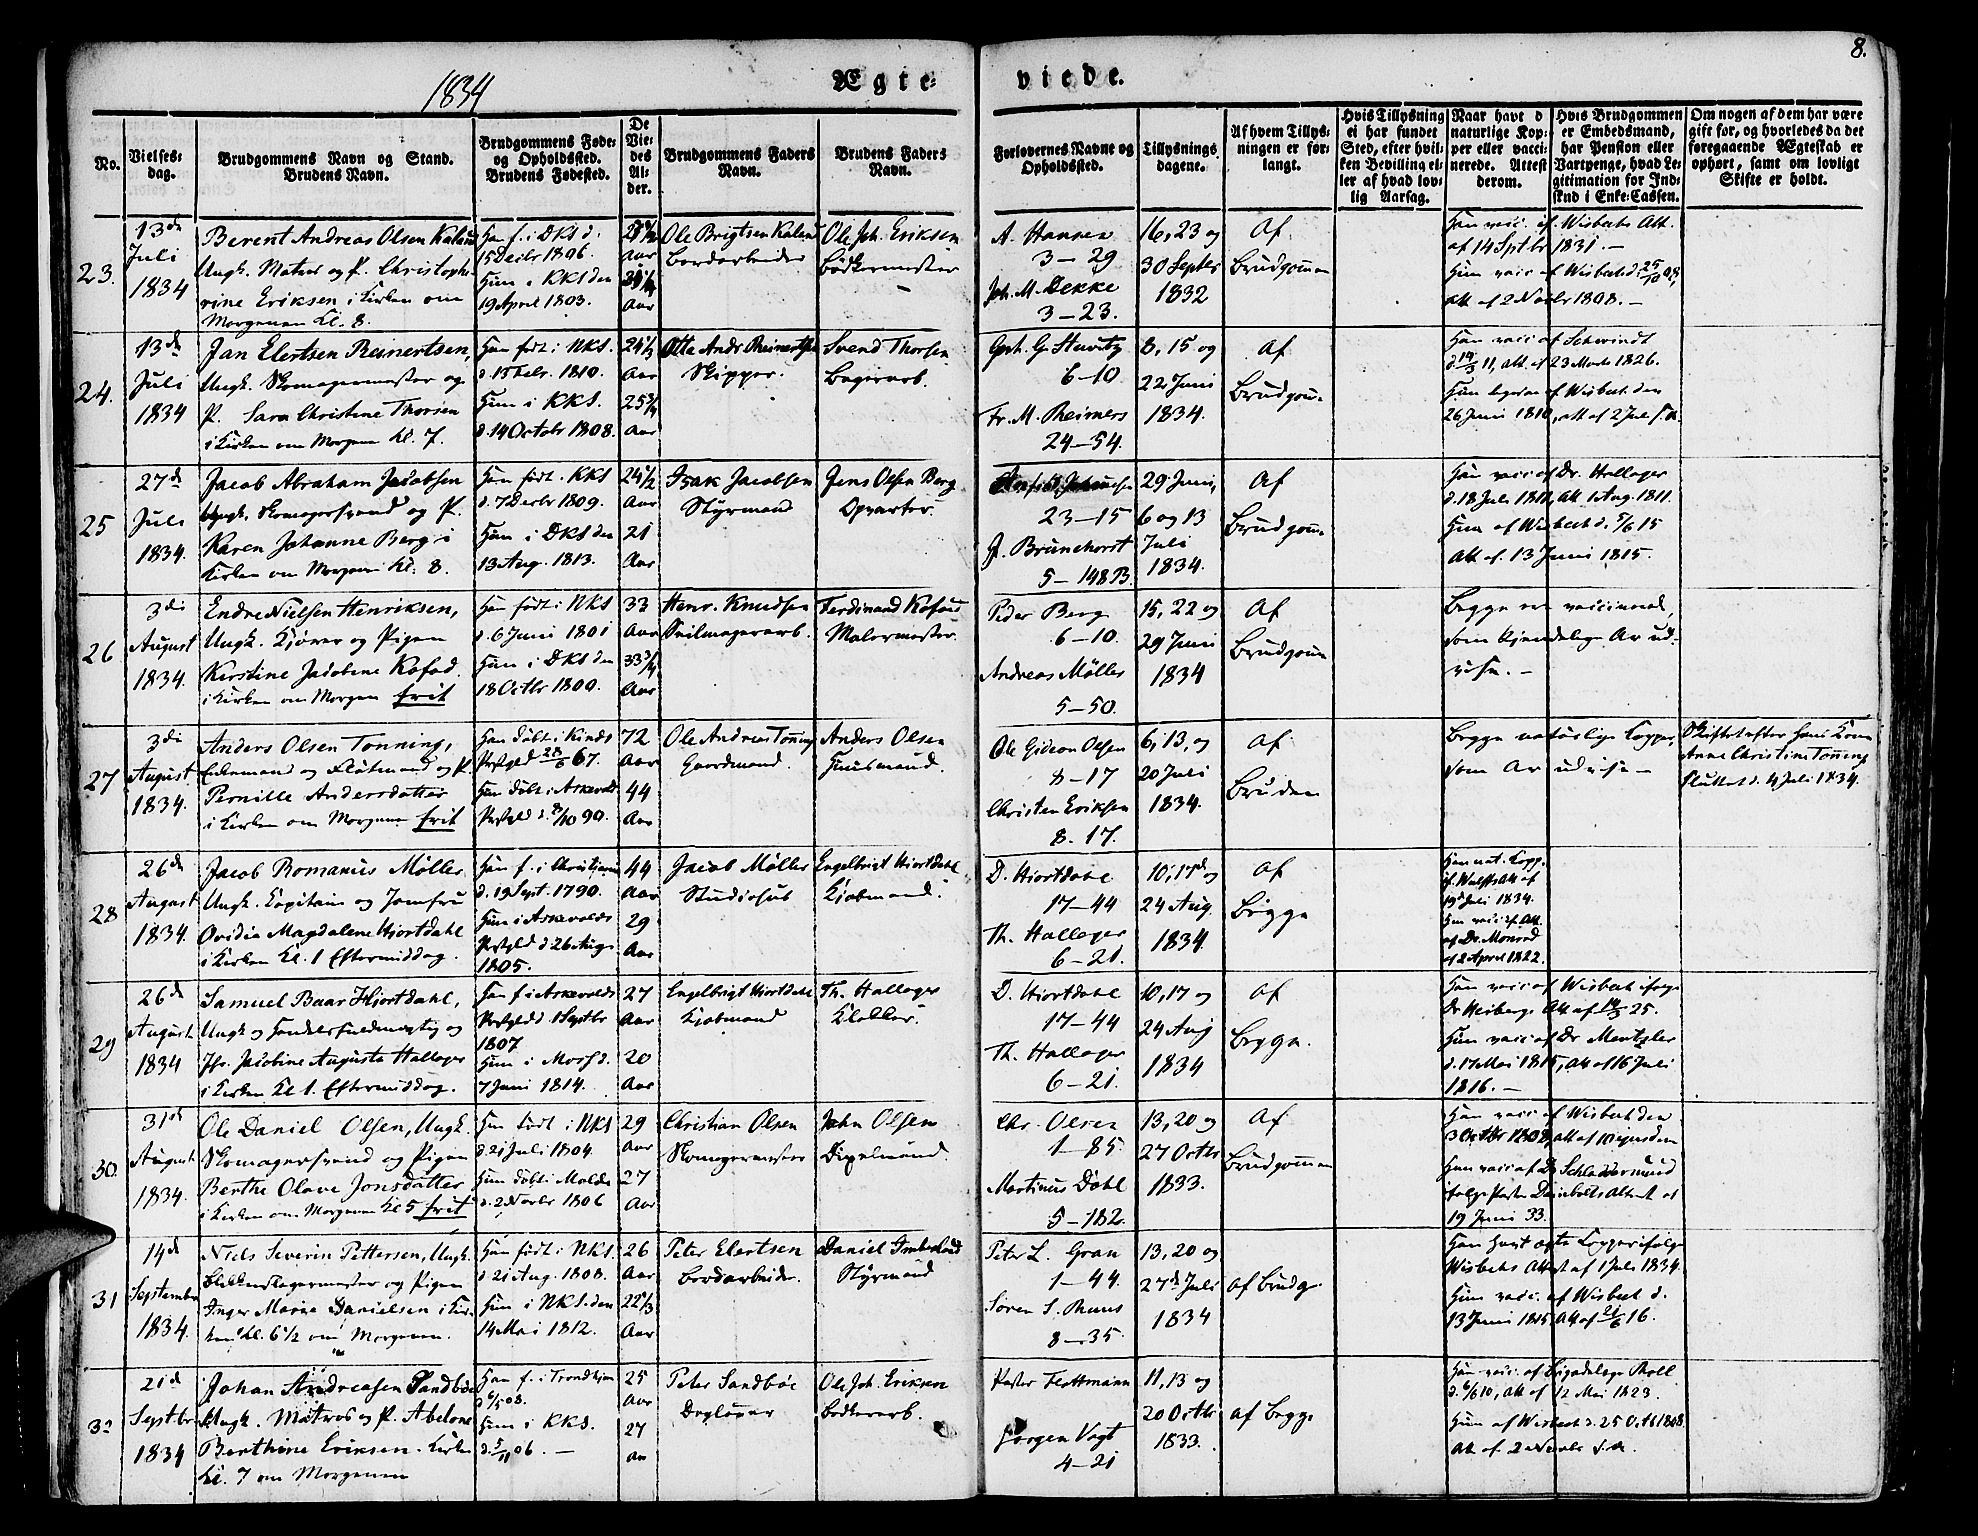 1834
Ægte-
viede.
8.
No.
Vielses-
dag.
Brudgommens Navn og Stand.
Brudens Navn.
Brudgommens Føde-
og Opholdssted.
Brudens Fødested.
De
Vie-
des
Al-
der.
Brudgommens Faders
Navn.
Brudens Faders
Navn.
Forlovernes Navne og
Opholdssted.
Tillysnings
dagene.
Af hvem Tillys-
ningen er for-
langt.
Hvis Tillysning
ei har fundet
Sted, efter hvil-
ken Bevilling el-
ler af hvad lov-
lig Aarsag.
Naar havt d
naturlige Kop-
per eller vacci-
nerede. Attest
derom.
Hvis Brudgommen
er Embedsmand,
har Pension eller
Vartpenge, hvad Le-
gitimation for Ind-
skud i Enke-Cassen.
Om nogen af dem har være
gift før, og hvorledes da det
foregaaende Ægteskab er
ophørt, samt om lovligt
Skifte er holdt.
23.
13de
Juli
1834
Berent Andreas Olsen
Ungk. Matros og P. Christopho-
rine Eriksen i Kirken om
Morgenen Kl. 8.
Han f. i DKS d.
15 Decbr 1806.
Hun i KKS den
19 April 1803.
Aar
Aar
Ole Brigtsen
Bordarbeider
Ole Joh. Eriksen
Bødkermester
A. Hansen
3-29
Joh. M. Dekke
3-23.
16, 23 og
30 Septbr
1832
Af
Brudgommen
Han vacc. af Wisbech Att.
af 14 Septbr 1831.-
Hun vacc. af Wisbech d. 25/10 08,
Att. af 2 Novbr 1808.-
24.
13de
Juli
1834
Jan Elertsen Reinertsen,
Ungk. Skomagermester og
P. Sara Christine Thorsen
i Kirken om Morgenen Kl. 7.
Han født i NKS.
d. 15 Febr. 1810.
Hun i KKS.
d. 14 Octobr 1808.
24 1/3
Aar
25 3/4
Aar
Otto Andr Reinertsen
Skipper.
Svend Thorsen
Bagerarb.
6-10.
Fr. M. Reimers
24-54.
8, 15 og
22 Juni
1834.
Af
Brudgom.
Han vacc. af Schwindt
Att. af 23 Marts 1826.
Hun ligesaa af Wisbech den
26 Juni 1810, Att af 2 Juli s.A.
25
27de
Juli
1834.
Jacob Abraham Jacobsen
Ungk. Skomagersvend og P.
Karen Johanne Berg i
Kirken om Morgenen Kl. 8.
Han født i KKS
d. 7 Decbr 1809.
Hun i DKS den
13 Aug. 1813.
24 1/2
Aar
21
Aar
Isak Jacobsen
Styrmand
Jens Olsen Berg
Opvarter.
23-15
J. Brunchorst
5-148B.
29 Juni,
6 og 13
Juli
1834.
Af
Brudgom.
Han vacc af Dr. Hallager
d. 18 Juli 1811, Att 1 Aug. 1811.
Hun af Wisbech d. 5/6 15
Att af. 13 Juni 1815.
26
3die
August
1834.
Endre Nielsen Henriksen,
Ungk. Kjører og Pigen
Kirstine Jacobine Kofod.
i Kirken om Morgen frit
Han født i NKS
d. 6 Juni 1801
Hun i DKS den
18 Octbr 1800.
33
Aar
33 3/4
Aar
Henr. Knudsen
Seilmagerarb.
Ferdinand Kofoed
Malermester.
Peder Berg
6-10.
Andreas Møller
5-50.
15, 22 og
29 Juni
1834
Af
Brudgom
Begge ere vaccinered,
som kjendelige Ar ud-
vise.-
27
3die
August
1834.
Anders Olsen Tonning,
Enkemand og Fløtmand og P.
Pernille Andersdatter
i Kirken om Morgenen frit
Han døbt i Kinds
Præstgld 67.
Hun døbt i Askevolds
Præstgld d. 8/10 90.
72
Aar
44
Aar
Ole Andreas Tonning
Gaardmand.
Anders Olsen
Huusmand.
Ole Gideon Olsen
8-17
Christen Eriksen
8.17.
6, 13, og
20 Juli
1834.
af
Bruden
Begge naturlige Kopper,
som Ar udvise-
Skiftet efter hans Kone
Anne Christine Tonning
sluttet d. 4 Juli 1834.
28
26de
August
1834.
Jacob Romanus Møller
Ungk. Capitain og Jomfru
Ovidia Magdalene Hjortdahl
i Kirken Kl. 1 Eftermiddag.
Han f. i Christiania
d. 19 Sept. 1790.
Hun i Askevolds
Præstgld d. 26 Aug.
1805.
44
Aar
29
Aar
Jacob Møller
Engelbrigt Hjortdahl
Kjøbmand.
D. Hjortdahl
17-44
Th. Hallager
6-21.
10, 17de og
24 Aug.
1834
af
Begge
Han nat. Kopp.
Att af
19 Juli 1834.
Hun vacc. af Att.
af Dr. Monrad
af 2 April 1822.
29
26de
August
1834
Samuel Baar Hjortdahl,
Ungk og Handelsfuldmægtig og
Jfr. Jacobine Augusta Hallager
i Kirken Kl 1. Eftermiddag.
Han f i Askevolds
Præstgld d 1 Septbr
1807
Hun i Moss d.
7 Juni 1814.
27
Aar
20
Aar
Engelbrigt Hjortdahl
Kjøbmand
Th. Hallager
Klokker.
D. Hjortdahl
17-44
Th. Hallager
6-21.
10, 17 og
24 Aug
1834
af
Begge.
Han vacc af Wisbech ifølge
Dr Heibergs Att af 25.
Hun vacc af Dr Mentzler
d. 17 Mai 1815, Att af 16 Juli
1816.-
30.
31te
August
1834.
Ole Daniel Olsen, Ungk.
Skomagersvend og Pigen
Berthe Olave Jonsdatter
i Kirken om Morgenen Kl 5 frit
Han født i NKS
d. 21 Juli 1804.
Hun døbt i Molde
d. 2 Novbr 1806
29
Aar
27
Aar
Christian Olsen
Skomagermester
John Olsen
Chr. Olsen
1-85.
Martinus Dahl
5-182.
13, 20 og
27 Octbr
1833.
Af
Brudgommen
Han vacc af Wisbech den
3 Octbr 1808, Att af 10
Hun vacc af Dr Schladermund
ifølge Pastor Deinbolls Attest af
19 Juni 33.
31
14de
September
1834.
Niels Severin Pettersen, Ungk.
Blikkenslagermester og Pigen
Inger Marie Danielsen i Kir-
ken Kl. 6 1/2 om Morgenen.
Han født i NKS.
d 21 Aug. 1808.
Hun i NKS. den
14 Mai 1812.
26
Aar
22 1/3
Aar
Peter Elertsen
Bordarbeider.
Daniel
Styrmand
Peter L. Gran
1-44.
Søren S. Ruus
8-35.
13, 20 og
27de Juli
1834
af Brudg.
Han havt ægte Kopper ifølge
Wisbechs Attest af 1 Juli 1834.
Hun vacc. af Wisbech d.
13 Juni 1815 Att af 21/6 16.
32
21de
Septbr
1834
Johan Andreasen Sandbøe
Ungk. Matros og P. Abelone
Berthine Eriksen. Kirken
Kl. 7 om Morgenen
Han f. i Trondhjem
6/5 08.
Hun i KKS.
d. 5/11 06.-
25
Aar
27
Aar
Peter Sandbøe
Dagløner
Ole Joh. Eriksen
Bødkerarb.
Pastor Flottmann
Jørgen Vogt
4-21
11, 13 og
20 Octbr
1833.
af Begge
Han vacc. af Brigadelæge Roll
Att. af 12 Mai 1823.
Hun af Wisbech d. 25 Octb 1808.
Att af. 2 Novbr s.A.